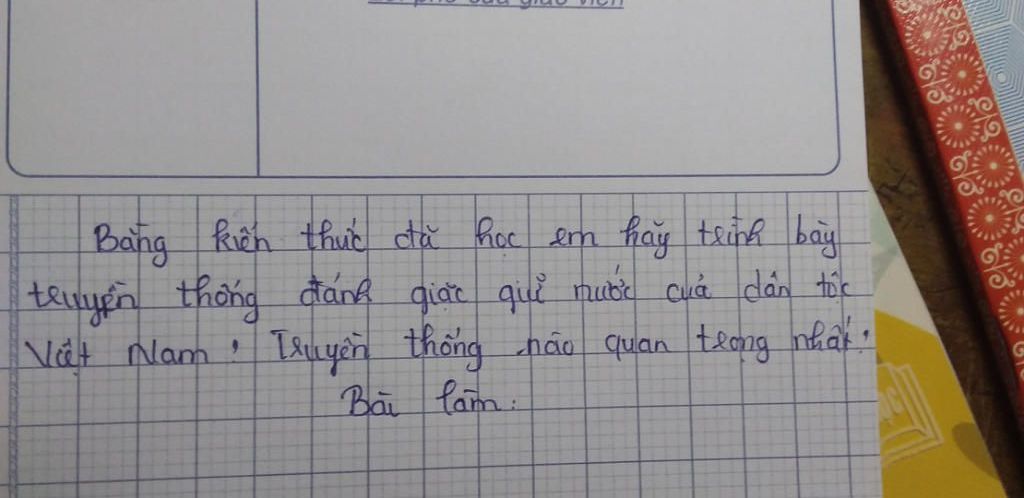 Lời phê của giáo viên
Bằng kiến thức đã học em hãy trình bày
truyền thống đánh giặc giữ nước của dân tộc
Việt Nam? Truyền thống nào quan trọng nhất?
Bài làm: